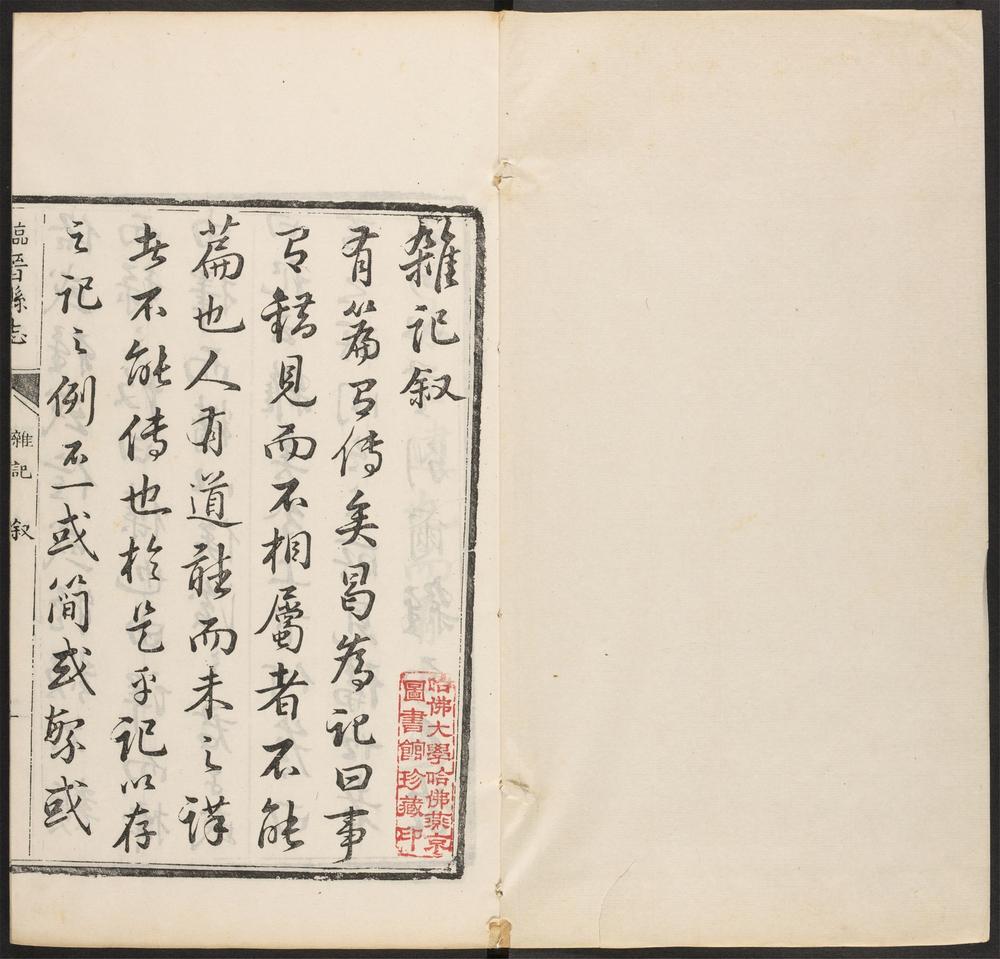 雜記叙
有篇有傳矣曷為記曰事
有錯見而不相屬者不能
篇也人有道誰而未之詳
者不能傳也於是乎記以存
之記之例不一或简或繁或
臨晉縣志
雜記
叙
一
哈佛大學哈佛燕京
圖書館珍藏印